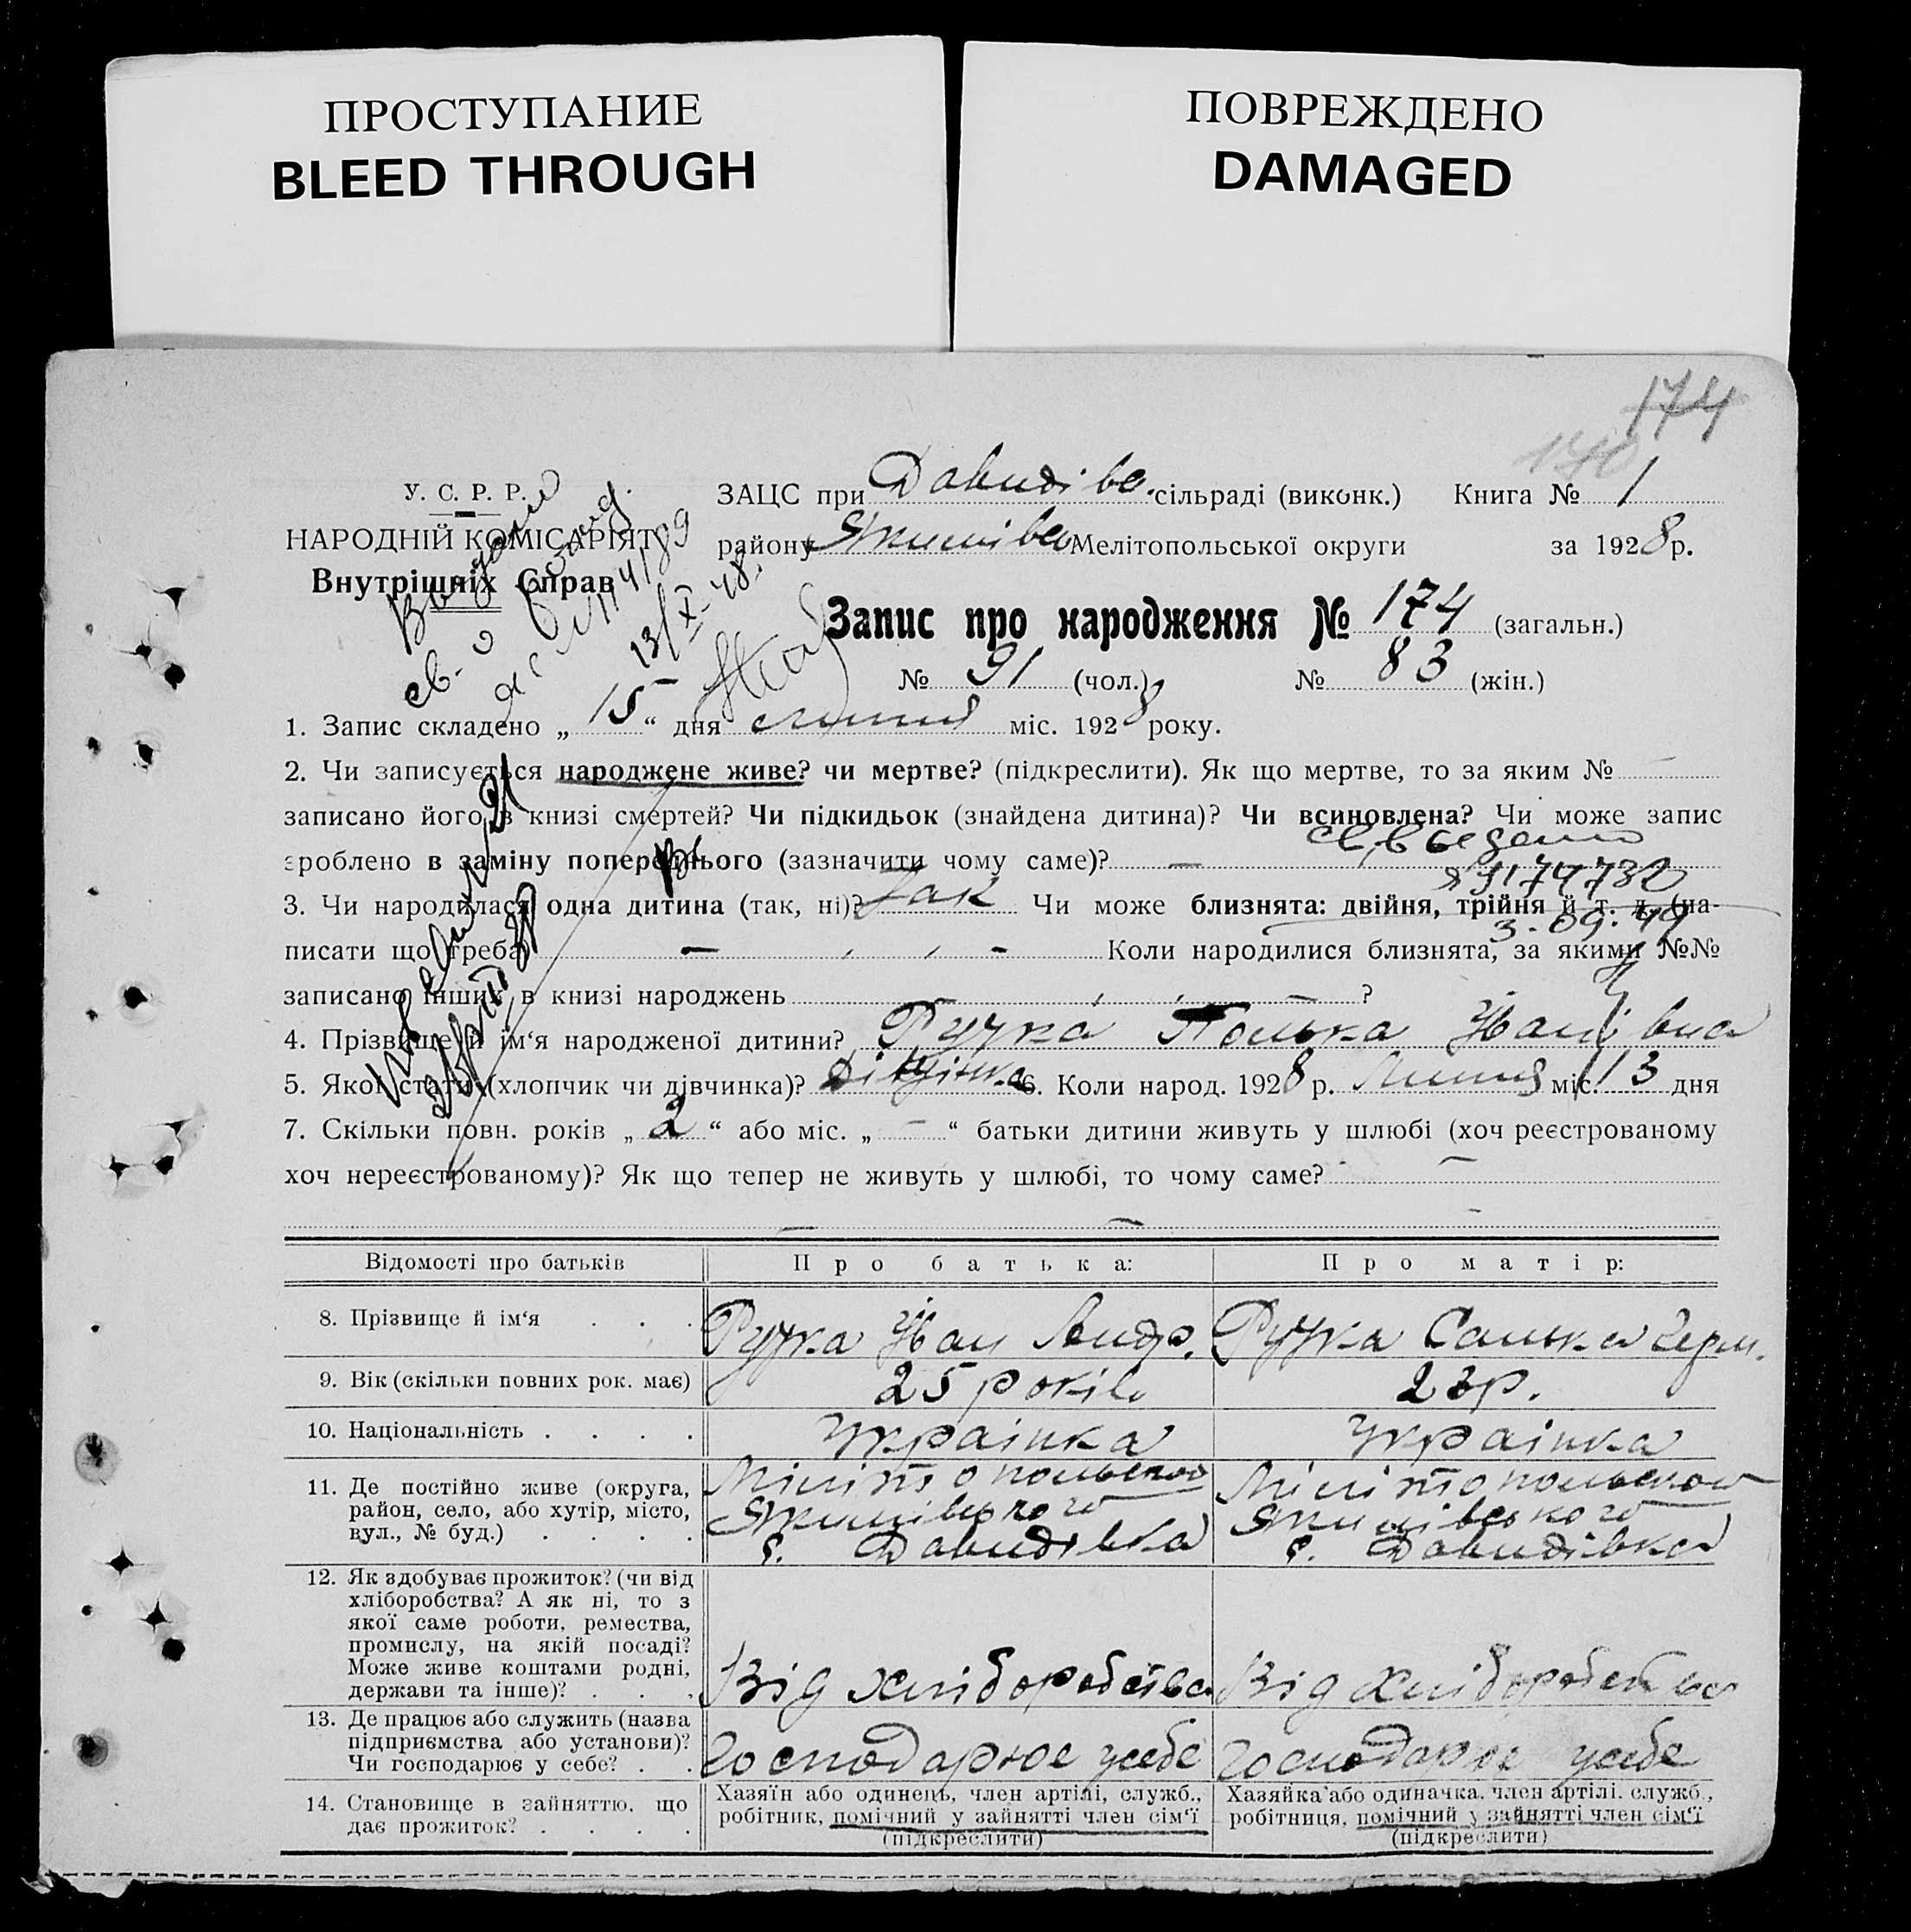 ПРОСТУПАНИЕ
BLEED THROUGH
ПОВРЕЖДЕНО
DAMAGED
174
У. С. Р. Р.
НАРОДНІЙ КОМІСАРІЯТ
Внутрішніх Справ
ЗАЦС при Давидівс. сільраді (виконк.) Книга № 1
району Якимівсь Мелітопольської округи за 1928 р.
Запис про народження № 174 (загальн.)
№ 91 (чол.) № 83 (жін.)
Видано
св-о
13/X-48.
1. Запис складено „15“ дня липня міс. 1928 року.
2. Чи записується народжене живе? чи мертве? (підкреслити). Як що мертве, то за яким №
записано його в книзі смертей? Чи підкидьок (знайдена дитина)? Чи всиновлена? Чи може запис
зроблено в заміну попереднього (зазначити чому саме)? —
3. Чи народилася одна дитина (так, ні)? Так Чи може близнята: двійня, трійня й т. д. (на-
писати що треба) — Коли народилися близнята, за якими №№
записано інших в книзі народжень ?
4. Прізвище й ім‘я народженої дитини? Ручка Полька Йванівна
5. Якої статі (хлопчик чи дівчинка)? Дівчинка 6. Коли народ. 1928 р. Липня міс. 13 дня
7. Скільки повн. років „2“ або міс. „-“ батьки дитини живуть у шлюбі (хоч реєстрованому
хоч нереєстрованому)? Як що тепер не живуть у шлюбі, то чому саме? —
Відомості про батьків Про батька: Про матір:
8. Прізвище й ім‘я . . . Ручка Йван Андр. Ручка Санька Герм.
9. Вік (скільки повних рок. має) 25 років 23р.
10. Національність . . . . Українка Українка
11. Де постійно живе (округа, район, село, або хутір, місто, вул., № буд.) . . . .
Мілітопольскоі
Якимівського
с. Давидівка
Мілітопольскоі
Якимівського
с. Давидівка
12. Як здобуває прожиток? (чи від
хліборобства? А як ні, то з
якої саме роботи, ремества,
промислу, на якій посаді?
Може живе коштами родні,
держави та інше)? . . .
Від хліборобства Від хліборобства
13. Де працює або служить (назва
підприємства або установи)?
Чи господарює у себе? . .
Господарює усебе Господарює усебе
14. Становище в зайняттю, що
дає прожиток? . . . .
Хазяїн або одинець, член артілі, служб.,
робітник, помічний у зайнятті член сім‘ї
(підкреслити)
Хазяйка або одиначка, член артілі, служб.,
робітниця, помічний у зайнятті член сім‘ї
(підкреслити)